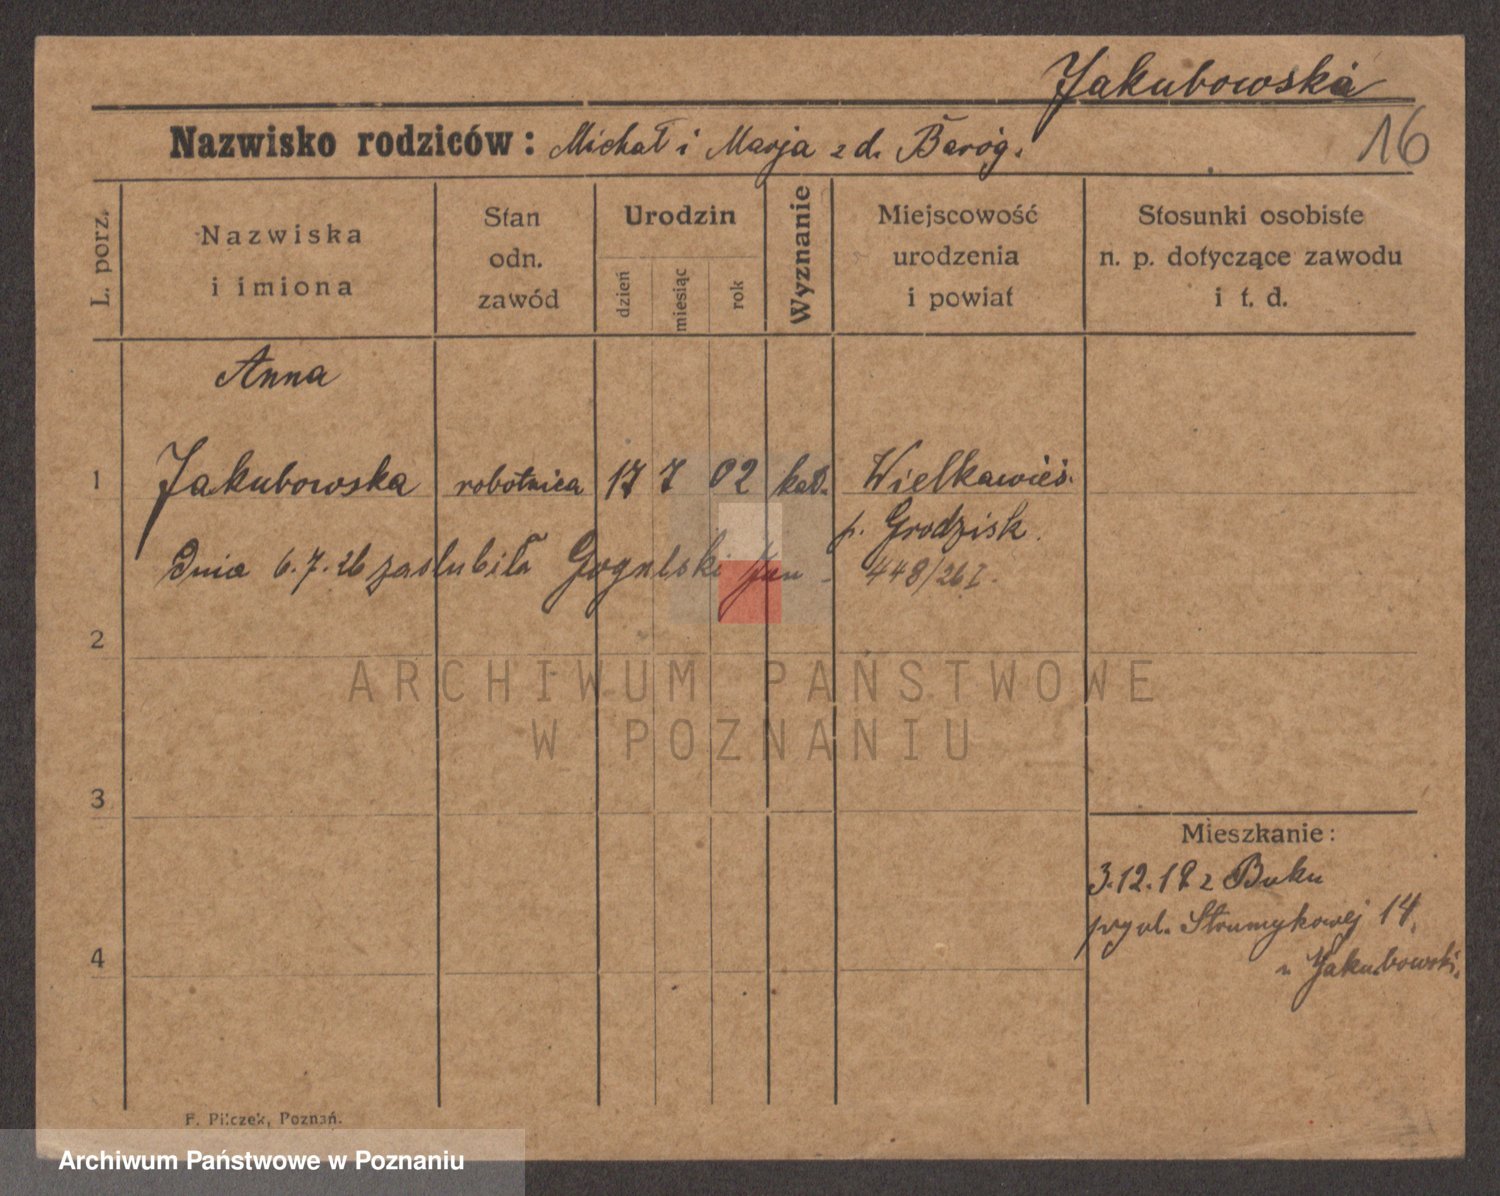 Jakubowska
Nazwisko rodziców: Michał i Marja z d. Baróg.
16
L. porz.
Nazwiska
i imiona
Stan
odn.
zawód
Urodzin
dzień
miesiąc
rok
Wyznanie
Miejscowość
urodzenia
i powiat
Stosunki osobiste
n. p. dotyczące zawodu
i t. d.
Anna
1 Jakubowska robotnica 17 7 02 kat. Wielkawieś.
p. Grodzisk.
Dnia 6.7.26 zaslubiła Jan - 448/26 I.
2
3
4
ARCHIWUM PAŃSTWOWE
W POZNANIU
Mieszkanie:
3.12.18 z Buku
przy ul. Strumykowej 14,
u Jakubowski.
F. Pilczek, Poznań.
Archiwum Państwowe w Poznaniu